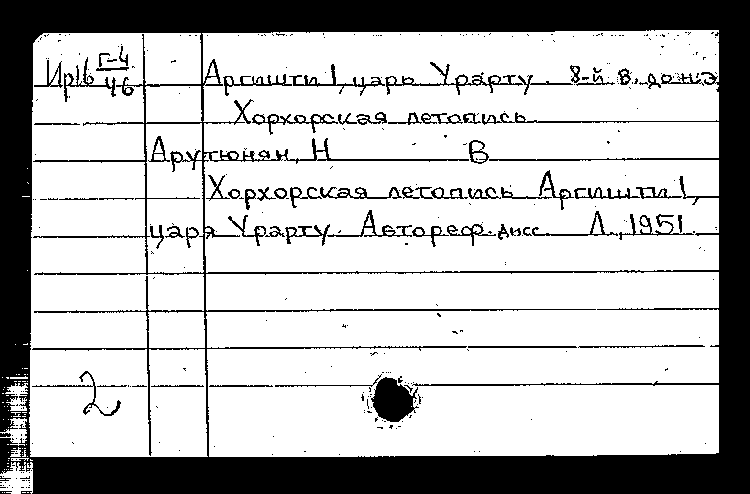 Ир16 Г-4/46 Аргишти I, царь Урарту. 8-й в. до н.э.
Хорхорская летопись
Арутюнян, Н В
Хорхорская летопись Аргишти I,
царя Урарту. Автореф. дисс. Л., 1951.
2